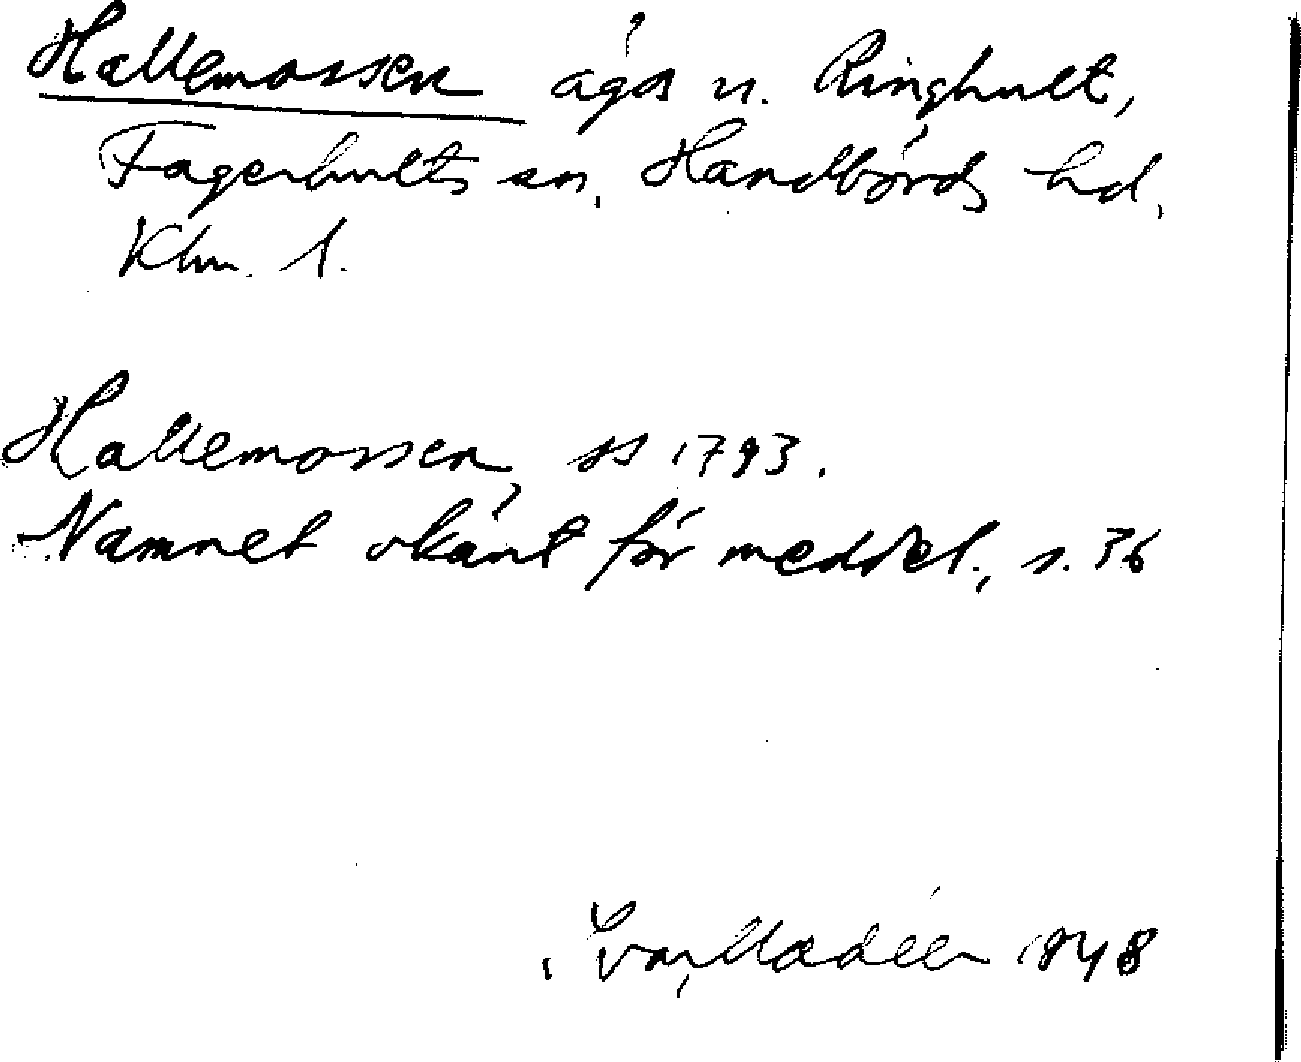 Hallemossen ägor u. Ringhult,
Fagerhults sn, Handbörds hd,
Klm. l.
Hallemossen, SS 1793.
Namnet okänt för meddel., s. 36
Ivar Modéer 1948